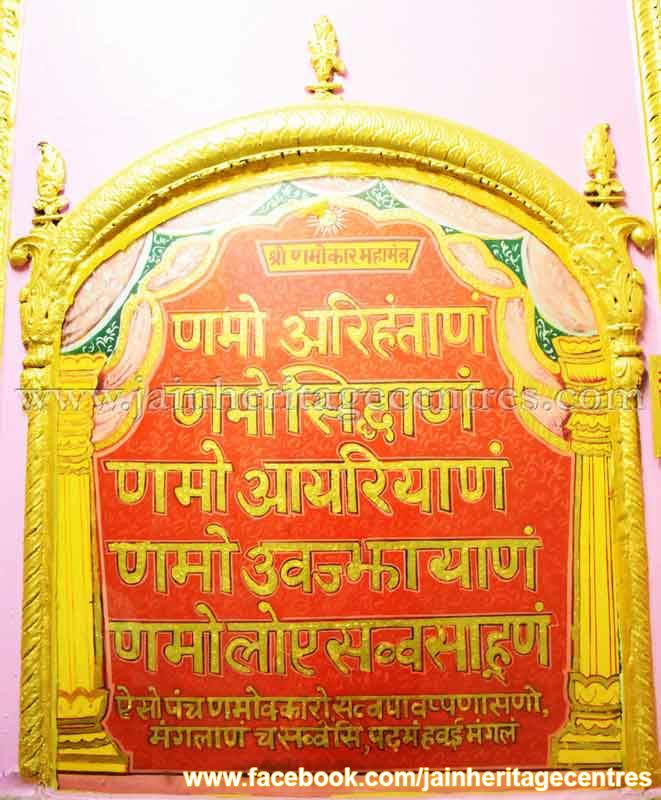 श्री णमोकार महामंत्र
णमो अरिहंताणं
णमो सिद्धाणं
www.jainheritagecentres.com
णमो आयरियाणं
णमो उवज्झायाणं
णमो लोए सव्व साहूणं
ऐसो पंच णमोक्कारो सव्व पाव प्पणासणो,
मंगलाण च सव्वेसि, पढमं हवई मंगलं
www.facebook.com/jainheritagecentres